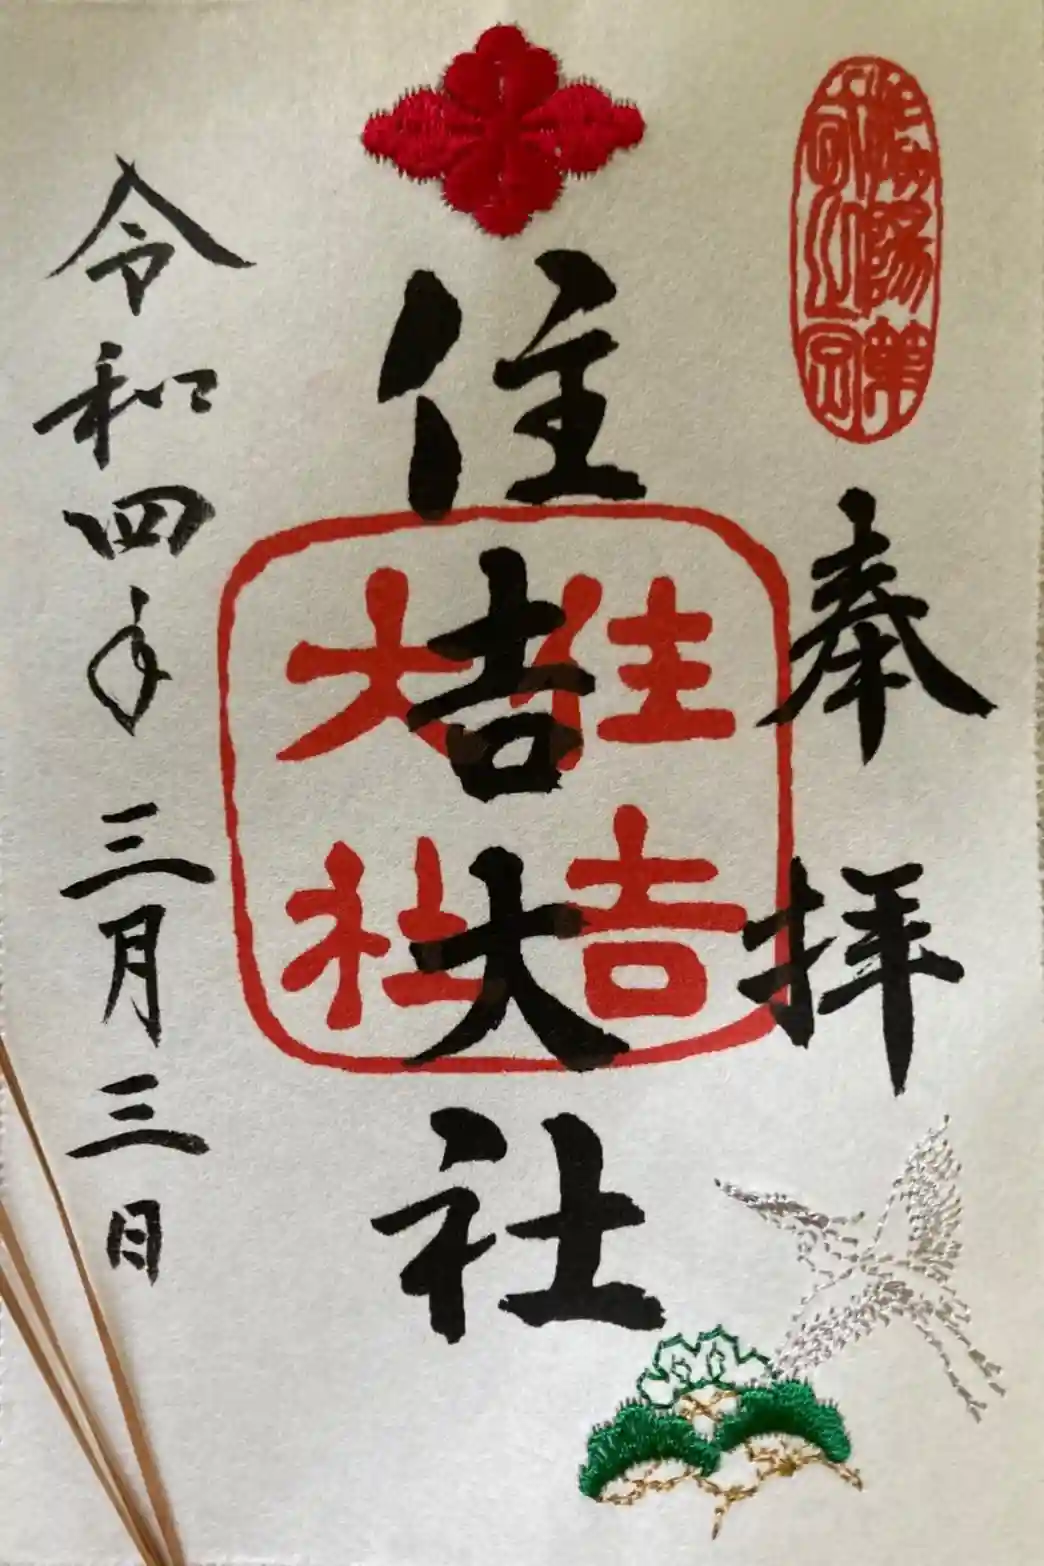 奉拝
住吉大社
住吉大社
令和四年三月三日